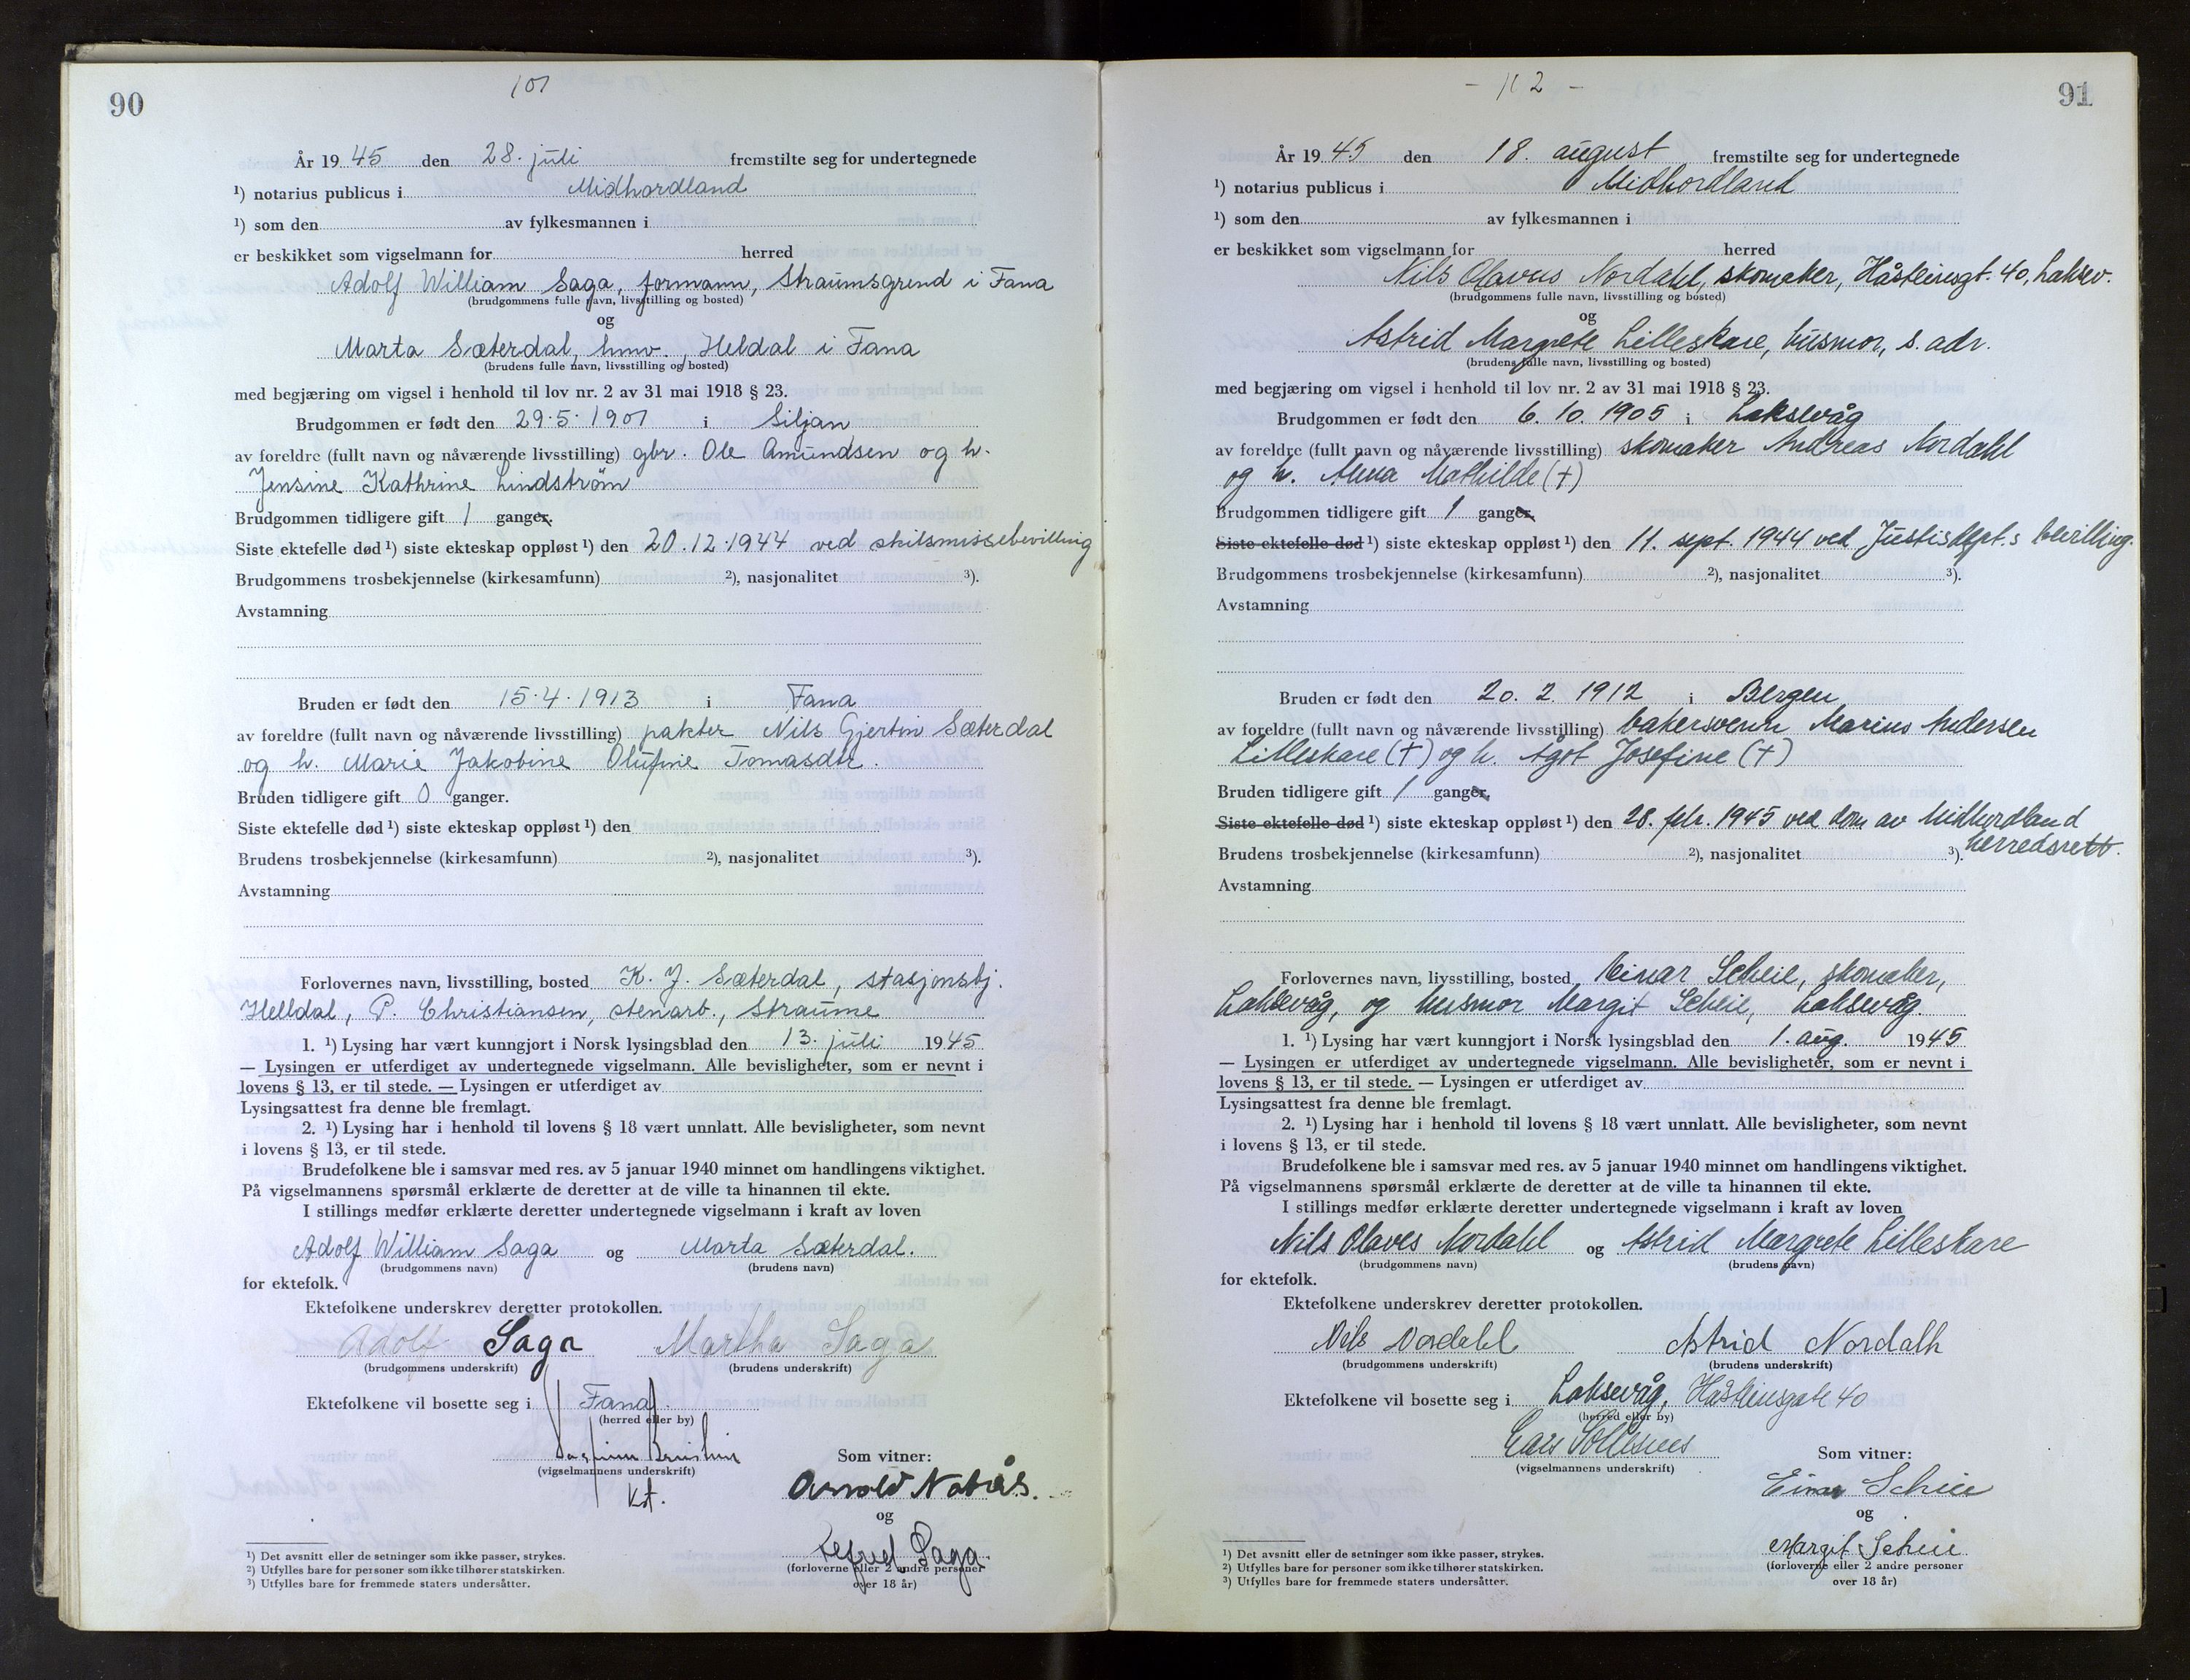 90
101
År 1945 den 28. juli fremstilte seg for undertegnede
¹) notarius publicus i Midhordland
¹) som den av fylkesmannen i
er beskikket som vigselmann for herred
Adolf William Saga, formann, Straumsgrend i Fana
(brudgommens fulle navn, livsstilling og bosted)
og
Marta Sæterdal, hmv., Heldal i Fana
(brudens fulle navn, livsstilling og bosted)
med begjæring om vigsel i henhold til lov nr. 2 av 31 mai 1918 § 23.
Brudgommen er født den 29.5.1901 i Siljan
av foreldre (fullt navn og nåværende livsstilling) gbr. Ole Amundsen og h.
Jensine Kathrine Lindstrøm
Brudgommen tidligere gift 1 ganger.
Siste ektefelle død ¹) siste ekteskap oppløst ¹) den 20.12.1944 ved skilsmissebevilling
Brudgommens trosbekjennelse (kirkesamfunn) ²), nasjonalitet ³).
Avstamning
Bruden er født den 15.4.1913 i Fana
av foreldre (fullt navn og nåværende livsstilling) pakter Nils Gjertin Sæterdal
og h. Marie Jakobine Olufine Tomasdtr.
Bruden tidligere gift 0 ganger.
Siste ektefelle død ¹) siste ekteskap oppløst ¹) den
Brudens trosbekjennelse (kirkesamfunn) ²), nasjonalitet ³).
Avstamning
Forlovernes navn, livsstilling, bosted K. J. Sæterdal, stasjonsbj.
Helldal, P. Christiansen, stenarb., Straume
1. ¹) Lysing har vært kunngjort i Norsk lysingsblad den 13. juli 1945
— Lysingen er utferdiget av undertegnede vigselmann. Alle bevisligheter, som er nevnt i
lovens § 13, er til stede. — Lysingen er utferdiget av
Lysingsattest fra denne ble fremlagt.
2. ¹) Lysing har i henhold til lovens § 18 vært unnlatt. Alle bevisligheter, som nevnt
i lovens § 13, er til stede.
Brudefolkene ble i samsvar med res. av 5 januar 1940 minnet om handlingens viktighet.
På vigselmannens spørsmål erklærte de deretter at de ville ta hinannen til ekte.
I stillings medfør erklærte deretter undertegnede vigselmann i kraft av loven
Adolf William Saga og Marta Sæterdal.
(brudgommens navn) (brudens navn)
for ektefolk.
Ektefolkene underskrev deretter protokollen.
Adolf Saga Martha Saga
(brudgommens underskrift) (brudens underskrift)
Ektefolkene vil bosette seg i Fana.
(herred eller by)
Som vitner:
(vigselmannens underskrift)
kst.
Arnold Natås.
og
Saga.
(forloverne eller 2 andre personer
over 18 år)
¹) Det avsnitt eller de setninger som ikke passer, strykes.
²) Utfylles bare for personer som ikke tilhører statskirken.
³) Utfylles bare for fremmede staters undersåtter.
91
- 102 -
År 1945 den 18. august fremstilte seg for undertegnede
¹) notarius publicus i Midhordland
¹) som den av fylkesmannen i
er beskikket som vigselmann for herred
Nils Olavus Nordahl, skomaker, Håsteinsgt. 40, Laksev.
(brudgommens fulle navn, livsstilling og bosted)
og
Astrid Margrete Lilleskare, husmor, s. adr.
(brudens fulle navn, livsstilling og bosted)
med begjæring om vigsel i henhold til lov nr. 2 av 31 mai 1918 § 23.
Brudgommen er født den 6. 10. 1905 i Laksevåg
av foreldre (fullt navn og nåværende livsstilling) skomaker Andreas Nordahl
og h. Anna Mathilde (†)
Brudgommen tidligere gift 1 ganger.
Siste ektefelle død ¹) siste ekteskap oppløst ¹) den 11. sept. 1944 ved Justisdept.s bevilling.
Brudgommens trosbekjennelse (kirkesamfunn) ²), nasjonalitet ³).
Avstamning
Bruden er født den 20. 2. 1912 i Bergen
av foreldre (fullt navn og nåværende livsstilling) bakersvenn Marius Andersen
Lilleskare (†) og h. Ågot Josefine (†)
Bruden tidligere gift 1 ganger.
Siste ektefelle død ¹) siste ekteskap oppløst ¹) den 28. febr. 1945 ved dom av Midhordland
Brudens trosbekjennelse (kirkesamfunn) ²), nasjonalitet ³). herredsrett.
Avstamning
Forlovernes navn, livsstilling, bosted Einar Scheie, skomaker,
Laksevåg, og husmor Margit Scheie, Laksevåg.
1. ¹) Lysing har vært kunngjort i Norsk lysingsblad den 1. aug. 1945
— Lysingen er utferdiget av undertegnede vigselmann. Alle bevisligheter, som er nevnt i
lovens § 13, er til stede. — Lysingen er utferdiget av
Lysingsattest fra denne ble fremlagt.
2. ¹) Lysing har i henhold til lovens § 18 vært unnlatt. Alle bevisligheter, som nevnt
i lovens § 13, er til stede.
Brudefolkene ble i samsvar med res. av 5 januar 1940 minnet om handlingens viktighet.
På vigselmannens spørsmål erklærte de deretter at de ville ta hinannen til ekte.
I stillings medfør erklærte deretter undertegnede vigselmann i kraft av loven
Nils Olaves Nordahl og Astrid Margrete Lilleskare
(brudgommens navn) (brudens navn)
for ektefolk.
Ektefolkene underskrev deretter protokollen.
Nils Nordahl Astrid Nordalh
(brudgommens underskrift) (brudens underskrift)
Ektefolkene vil bosette seg i Laksevåg, Håsteinsgate 40
(herred eller by)
Lars Sollesnes
Som vitner:
(vigselmannens underskrift)
Einar Scheie
og
Margit Scheie
(forloverne eller 2 andre personer
over 18 år)
¹) Det avsnitt eller de setninger som ikke passer, strykes.
²) Utfylles bare for personer som ikke tilhører statskirken.
³) Utfylles bare for fremmede staters undersåtter.